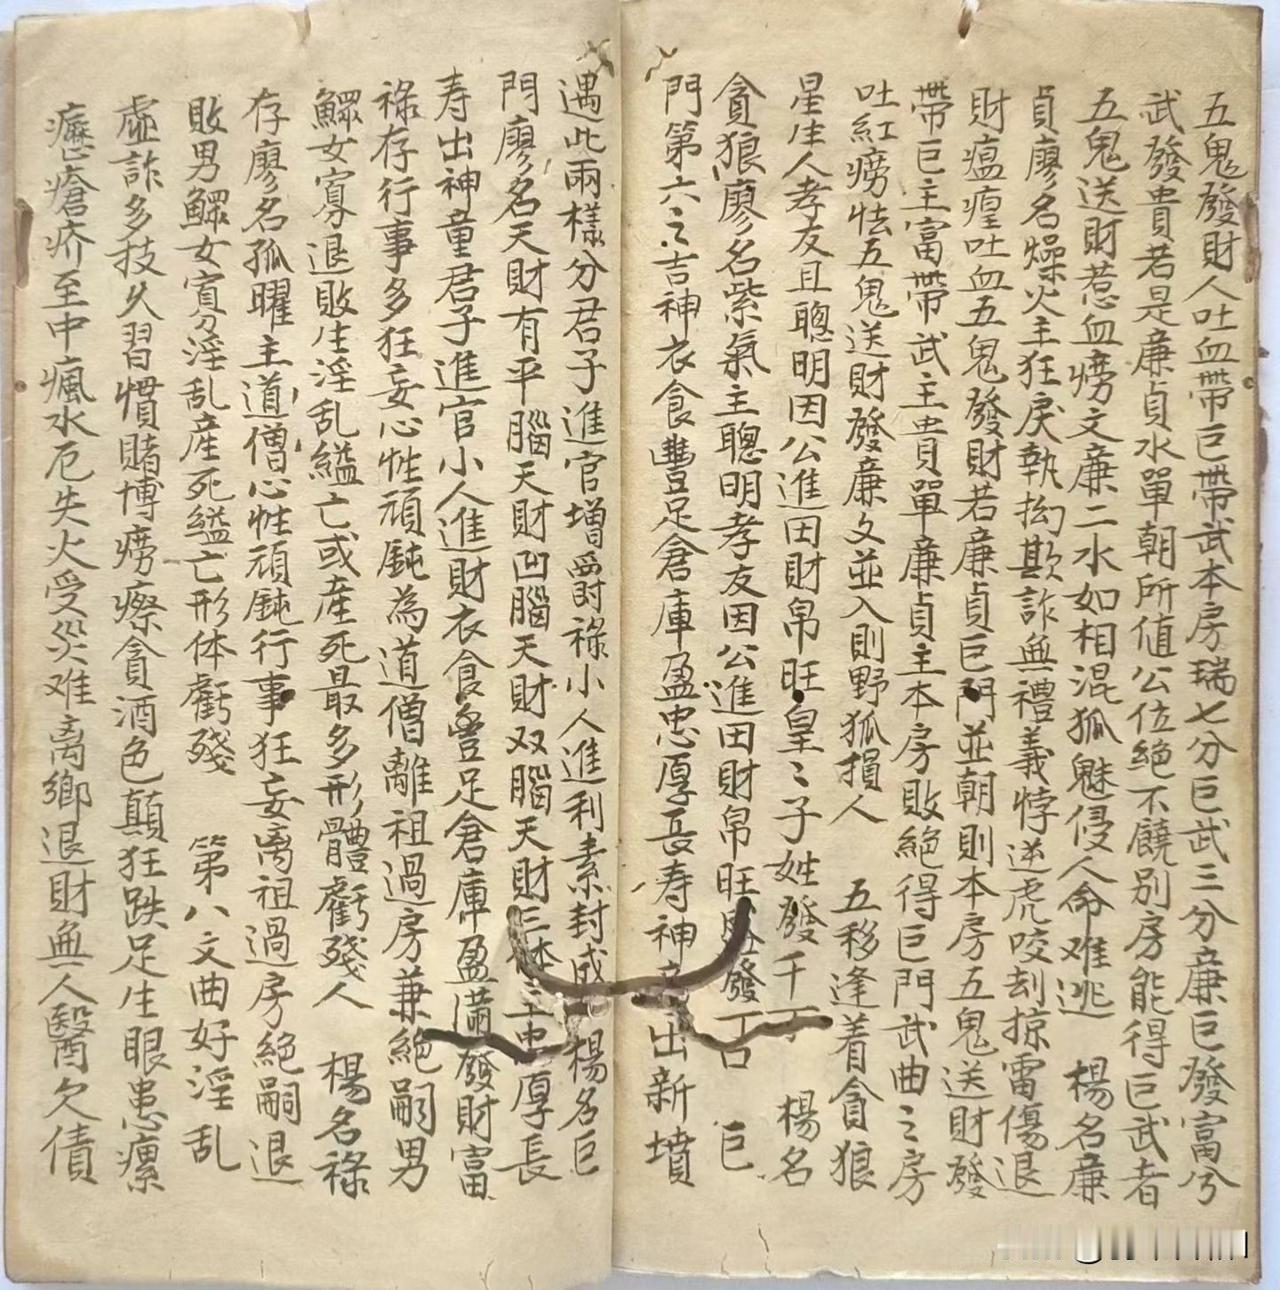 五鬼發財人吐血帶巨帶武本房瑞七分巨武三分廉巨發富兮
武發貴若是廉貞水單朝所值公位絕不饒別房能得巨武者
五鬼送財惹血癆文廉二水如相混狐魅侵人命难逃 楊名廉
貞廖名燥火主狂戾執拗欺詐無禮義悖逆虎咬刦掠雷傷退
財瘟㾮吐血五鬼發財若廉貞巨門並朝則本房五鬼送財發
帶巨主富帶武主貴單廉貞主本房敗絕得巨門武曲之房
吐紅癆怯五鬼送財發廉文並入則野狐損人 五移逢着貪狼
星生人孝友且聰明因公進田財帛旺皇〻子姓發千丁 楊名
貪狼廖名紫氣主聰明孝友因公進田財帛旺發丁口 巨
門第六之吉神衣食豐足倉庫盈忠厚長寿神出新墳
遇此兩樣分君子進官增爵祿小人進利素封成 楊名巨
門廖名天財有平腦天財凹腦天財双腦天財三体主忠厚長
寿出神童君子進官小人進財衣食豊足倉庫盈滿發財富
祿存行事多狂妄心性頑鈍為道僧離祖過房兼絕嗣男
鰥女寡退敗生淫乱縊亡或産死最多形體虧殘人 楊名祿
存廖名孤曜主道僧心性頑鈍行事狂妄离祖過房絕嗣退
敗男鰥女寡淫乱産死縊亡形体虧殘 第八文曲好淫乱
虛詐多技久習慣賭博癆瘵貪酒色顛狂跌足生眼患瘰
癧瘡疥至中瘋水厄失火受災难离鄉退財無人醫欠债